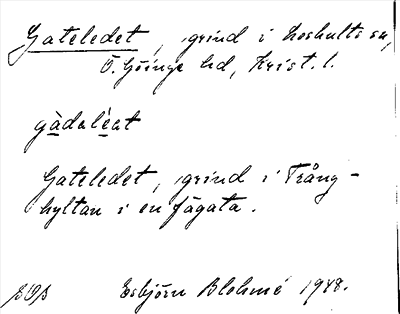 Gateledet, grind i Loshults sn,
Ö. Göinge hd, Krist. l.
gàdaléat
Gateledet, grind i Trång-
hyltan i en fägata.
Esbjörn Blohmé 1948.